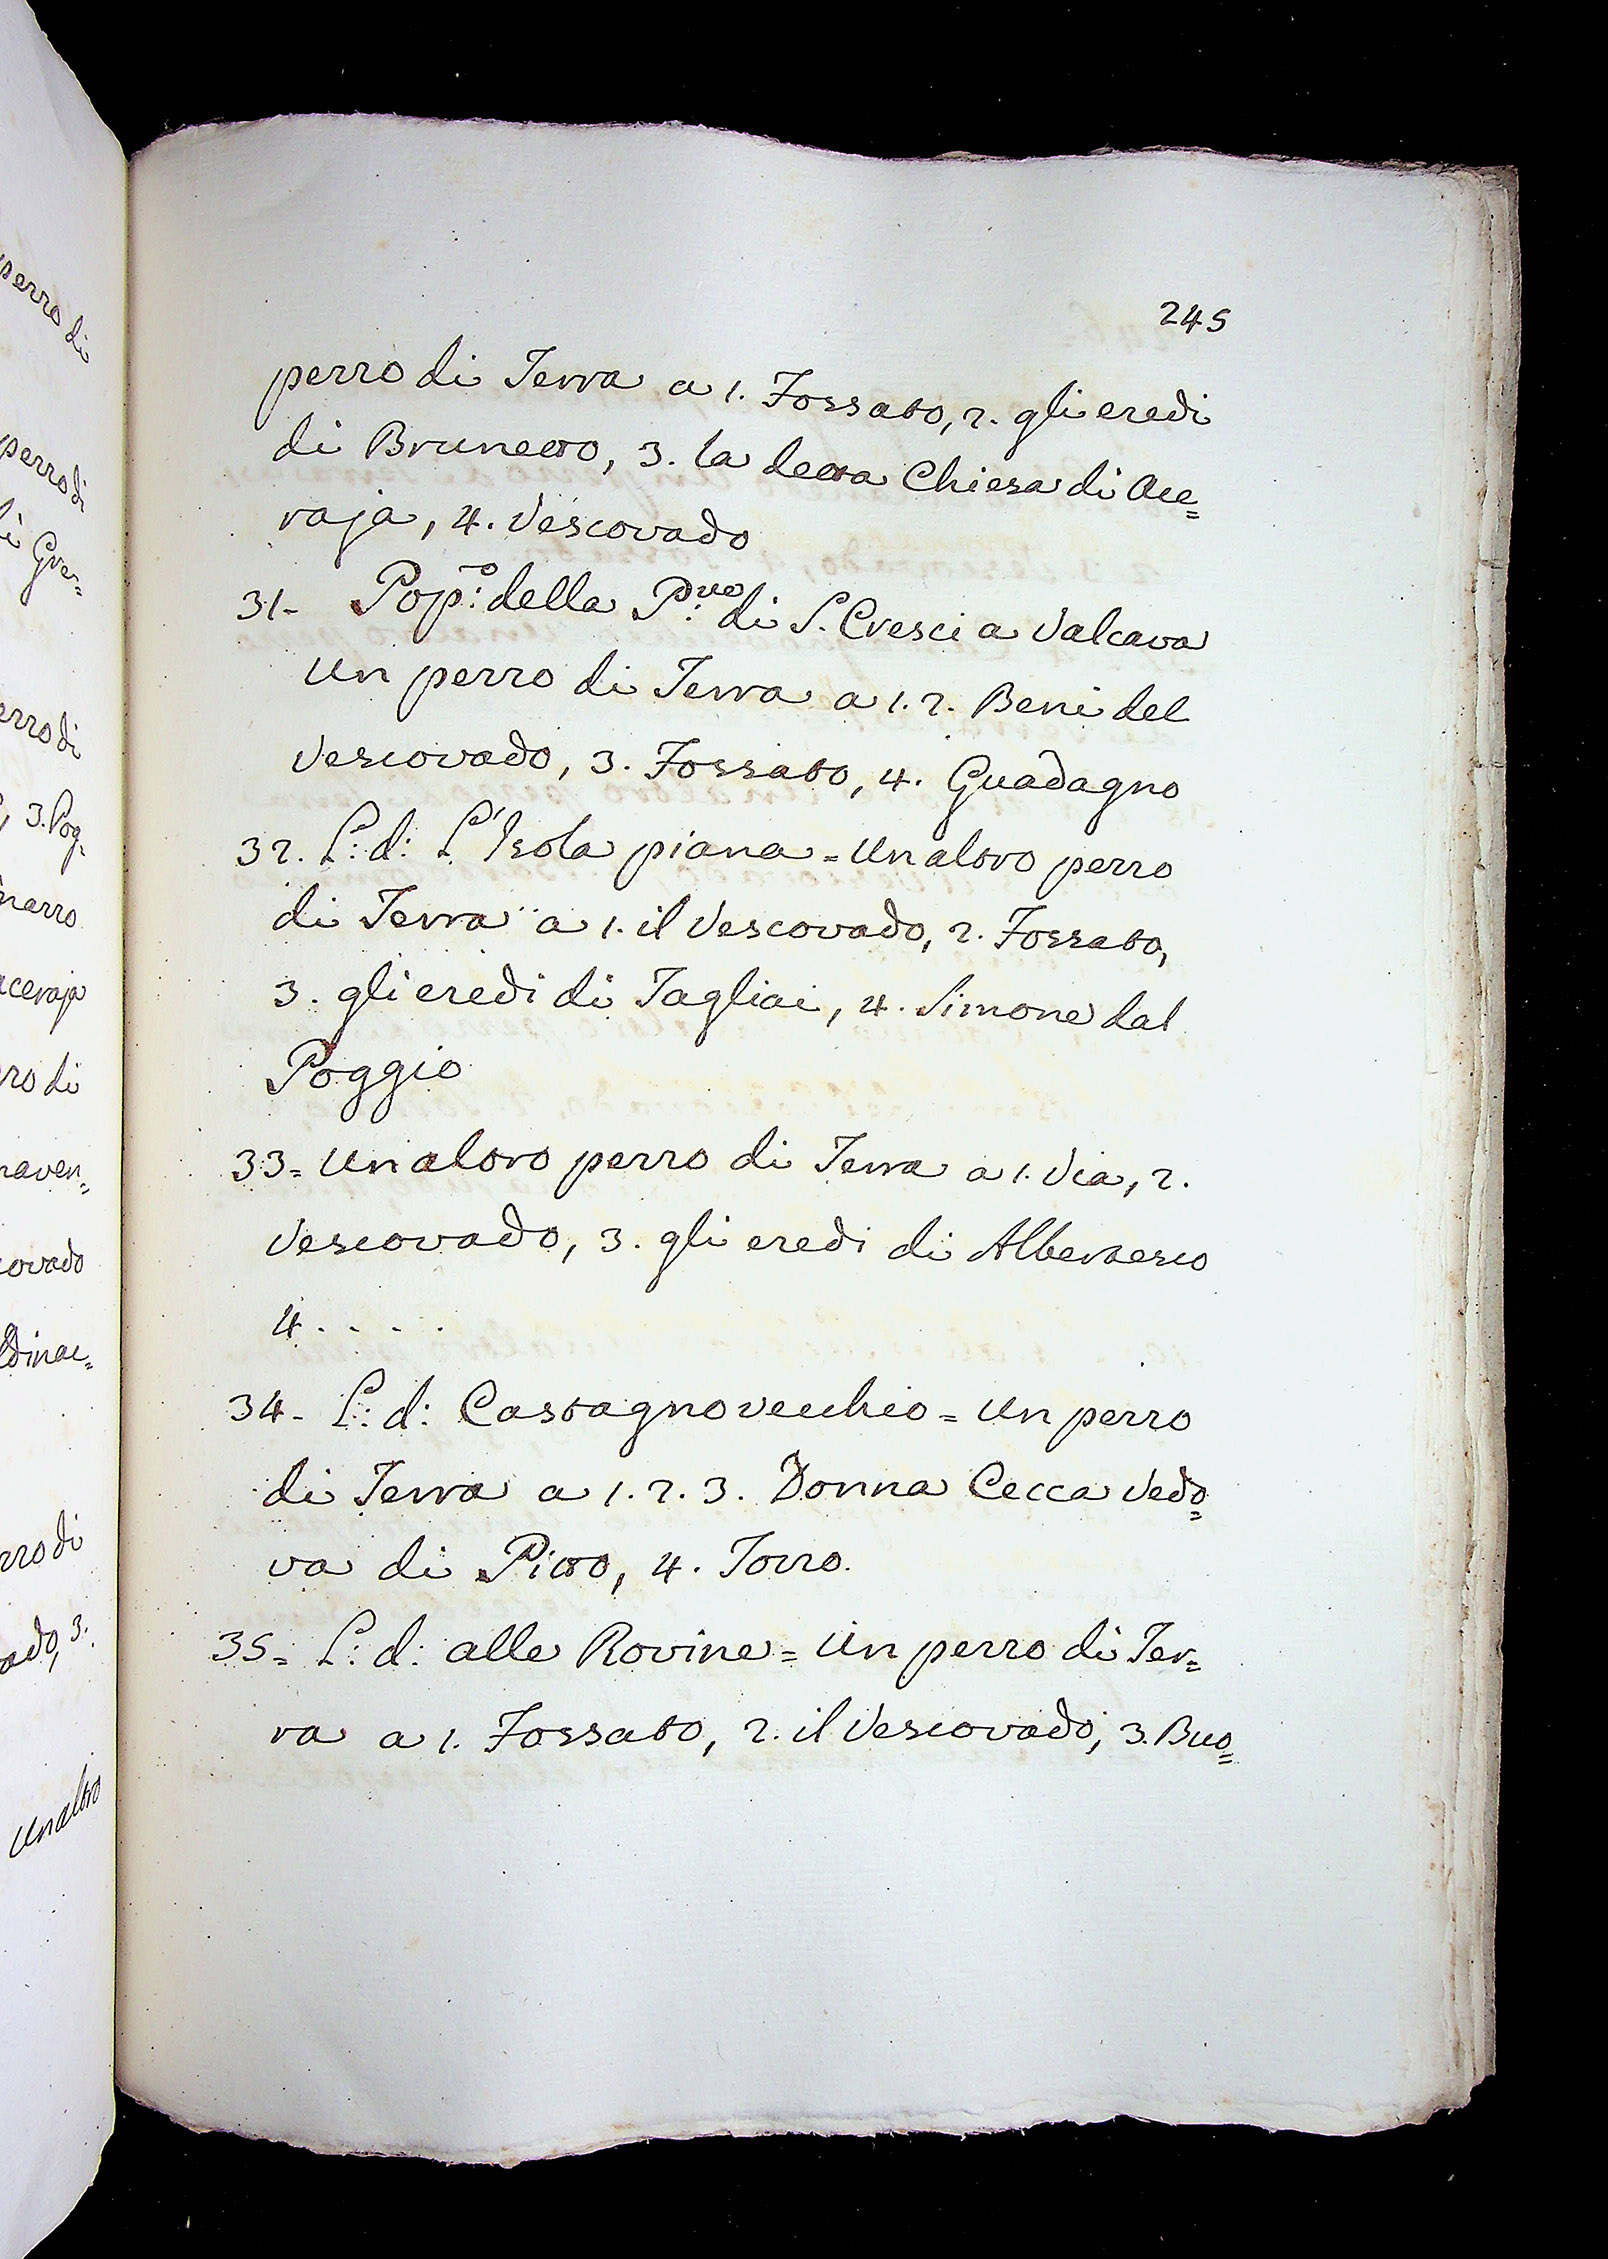 245
pezzo di Terra a 1. Fossato, 2. gli eredi
di Brunetto, 3. la detta Chiesa di Ace=
raja, 4. Vescovado
31- Pop:º della P:ve di S. Cresci a Valcava
Un pezzo di Terra a 1. 2. Beni del
Vescovado, 3. Fossato, 4. Guadagno
32. L: d: L'Isola piana = Un altro pezzo
di Terra a 1. il Vescovado, 2. Fossato,
3. gli eredi di Tagliai, 4. Simone dal
Poggio
33= Un altro pezzo di Terra a 1. Via, 2.
Vescovado, 3. gli eredi di Albertesco
4. . . . .
34- L: d: Castagnovecchio = Un pezzo
di Terra a 1. 2. 3. Donna Cecca Vedo=
va di Pitto, 4. Tozzo.
35= L: d: alle Rovine = Un pezzo di Ter=
ra a 1. Fossato, 2. il Vescovado, 3. Buo=